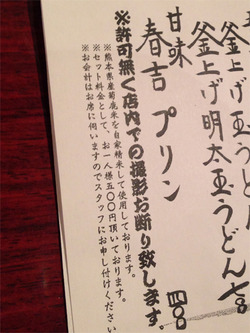 釜上げ玉うどん
釜上げ明太玉うどん
甘味
春吉プリン 四〇〇
※許可無く店内での撮影お断り致します。
※熊本県産菊鹿米を自家精米して使用しております。
※セット料金として、お一人様五〇〇円頂いております。
※お会計はお席に伺いますのでスタッフにお申し付けください